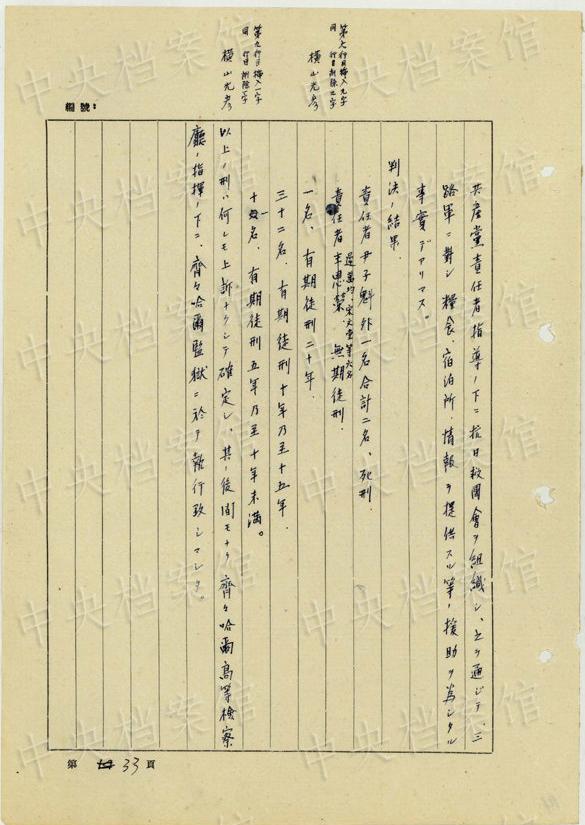 第九行目挿入九字
同 行目削除九字
横山光彦
第九行目挿入一字
同 行目削除一字
横山光彦
編號:
共産黨責任者指導ノ下ニ抗日救國會ヲ組織シ、之ヲ通ジテ、三
路軍ニ對シ糧食、宿泊所、情報ヲ提供スル等ノ援助ヲ為シタル
事實デアリマス。
判決ノ結果.
責任者尹子魁外一名合計二名、死刑.
責任者李思榮 等六名 無期徒刑.
一名、有期徒刑二十年.
三十二名、有期徒刑十年乃至十五年.
十一名、有期徒刑五年乃至十年未満。
以上ノ刑ハ何レモ上訴ナクシテ確定シ、其ノ後間モナク齊々哈爾高等檢察
廳ノ指揮ノ下ニ、齊々哈爾監獄ニ於テ執行致シマシタ。
第 33 頁
中央档案馆